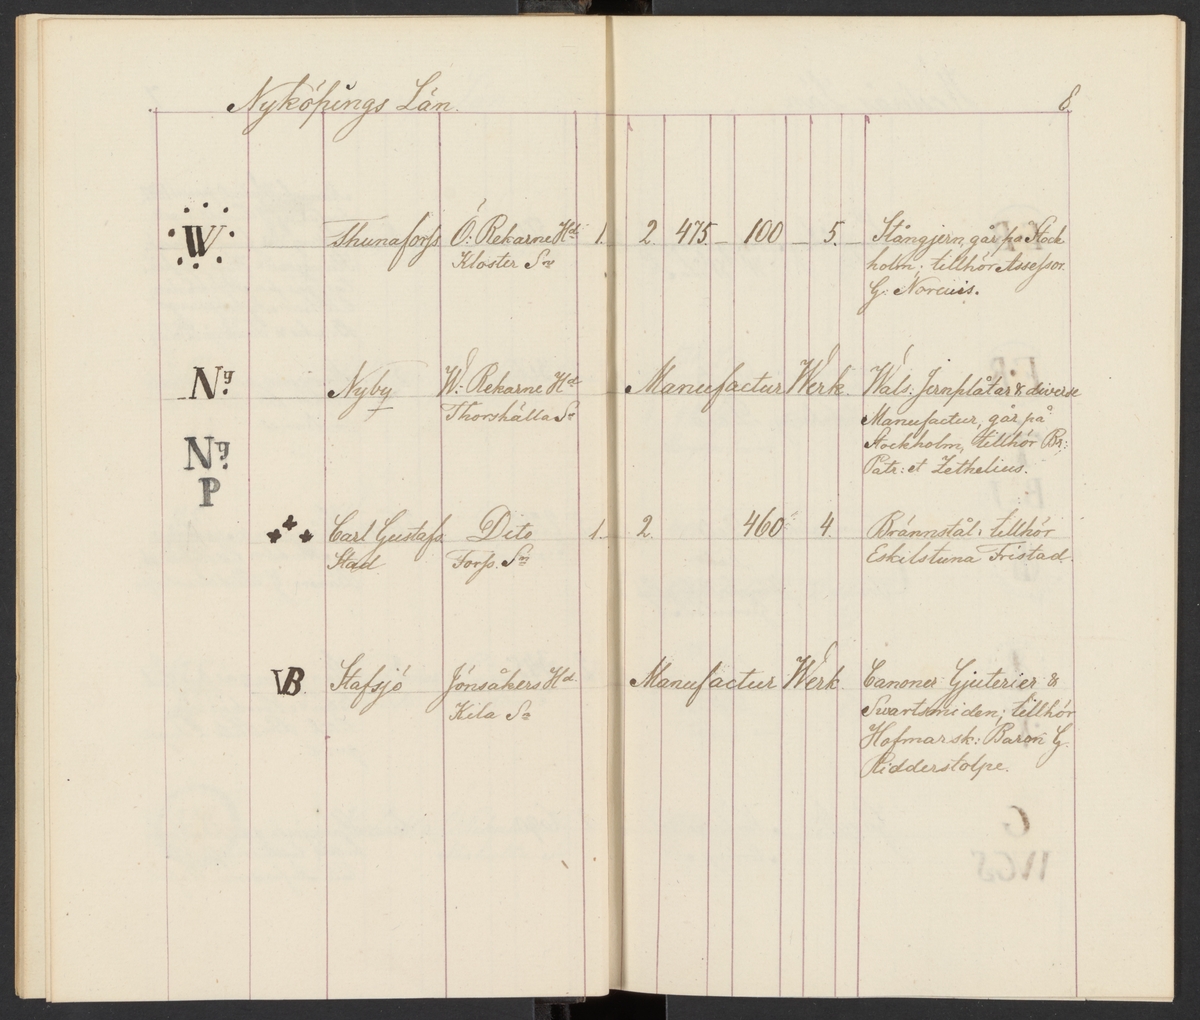 Nyköpings Län. 8
W Thunaforss Ö: Rekarne Hd 1. 2 475. 100 5. Stångjern, går på Stock
Kloster Sn holm; tillhör Assessor
G: Norcuis.
Ny Nyby W: Rekarne Hd Manufactur Werk. Wals: Jernplåtar & diverse
Thorshälla Sn Manufactur, går på
Ny Stockholm, tillhör Br:
P Patr: et Zethelius.
Carl Gustafs Dito 1. 2. 460 4. Brännstål; tillhör
Stad Forss. Sn Eskilstuna Fristad.
VB Stafsjö Jönsåkers Hd Manufactur Werk. Canoner Gjuterier &
Kila Sn Swartsmiden; tillhör
Hofmarsk: Baron G.
Ridderstolpe.